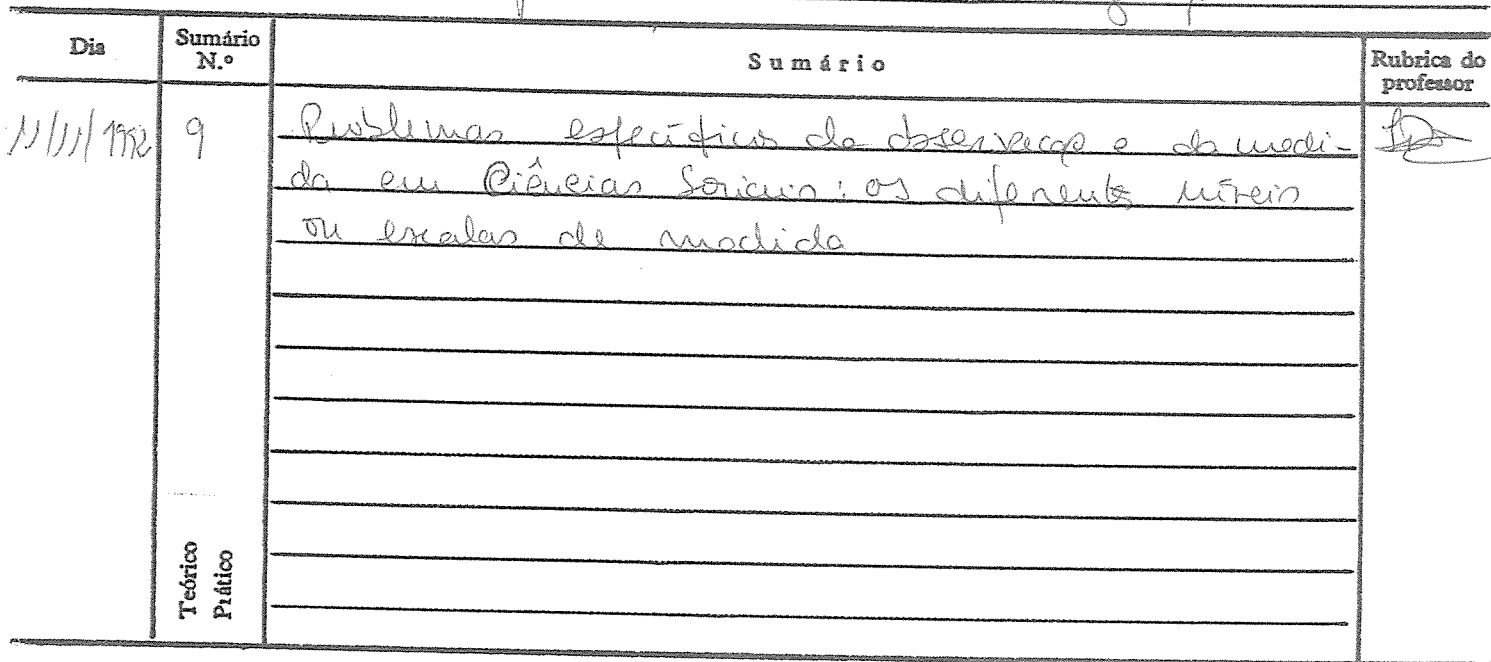 Dia Sumário N.º Sumário Rubrica do professor
9 Problemas específicos da observação e da medi-
da em Ciências Sociais: os diferentes níveis
ou escalas de medida
Teórico
Prático